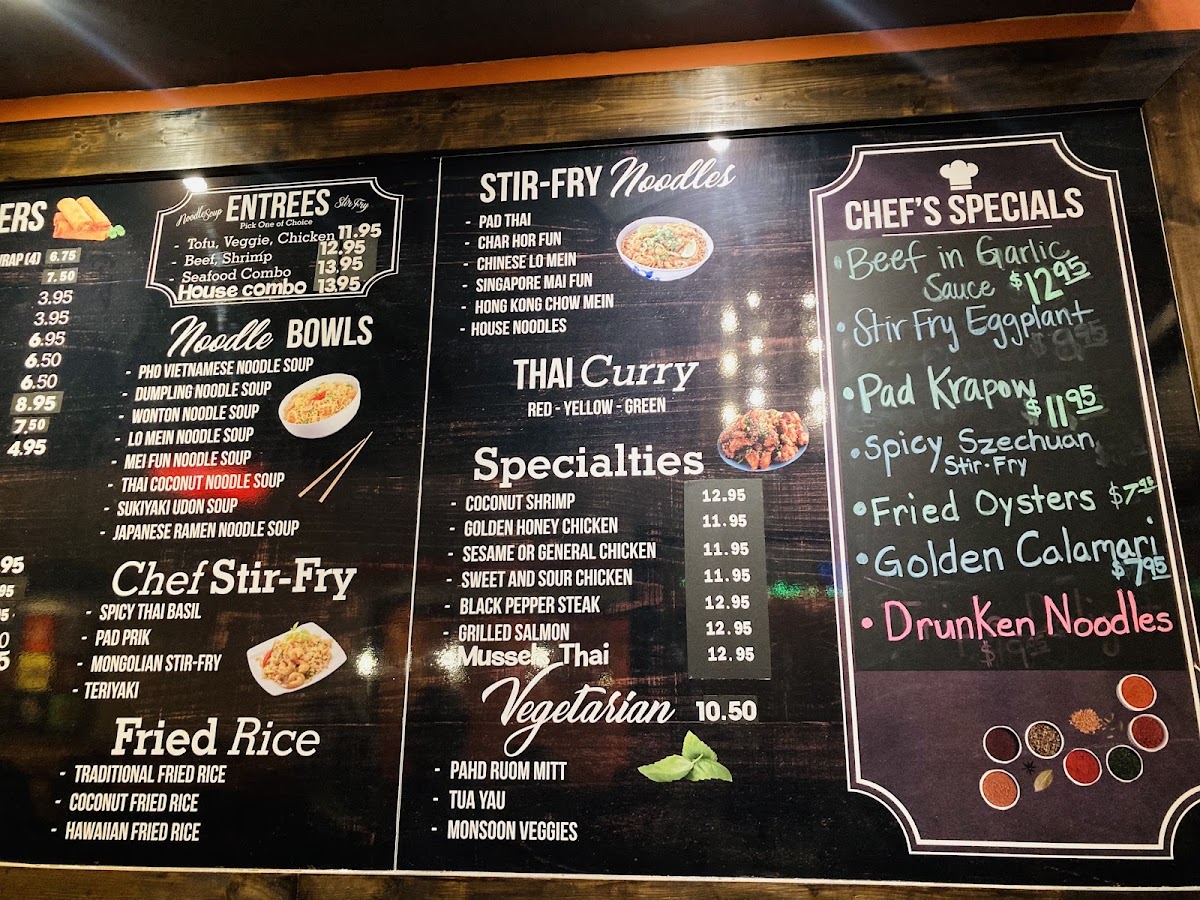 ERS
WRAP (4) 6.75
7.50
3.95
3.95
6.95
6.50
6.50
8.95
7.50
4.95
95
95
NoodleSoup ENTREES Stir Fry
Pick One of Choice
- Tofu, Veggie, Chicken 11.95
- Beef, Shrimp 12.95
- Seafood Combo 13.95
- House combo 13.95
Noodle BOWLS
- PHO VIETNAMESE NOODLE SOUP
- DUMPLING NOODLE SOUP
- WONTON NOODLE SOUP
- LO MEIN NOODLE SOUP
- MEI FUN NOODLE SOUP
- THAI COCONUT NOODLE SOUP
- SUKIYAKI UDON SOUP
- JAPANESE RAMEN NOODLE SOUP
Chef Stir-Fry
- SPICY THAI BASIL
- PAD PRIK
- MONGOLIAN STIR-FRY
- TERIYAKI
Fried Rice
- TRADITIONAL FRIED RICE
- COCONUT FRIED RICE
- HAWAIIAN FRIED RICE
STIR-FRY Noodles
- PAD THAI
- CHAR HOR FUN
- CHINESE LO MEIN
- SINGAPORE MAI FUN
- HONG KONG CHOW MEIN
- HOUSE NOODLES
THAI Curry
RED - YELLOW - GREEN
Specialties
- COCONUT SHRIMP 12.95
- GOLDEN HONEY CHICKEN 11.95
- SESAME OR GENERAL CHICKEN 11.95
- SWEET AND SOUR CHICKEN 11.95
- BLACK PEPPER STEAK 12.95
- GRILLED SALMON 12.95
Mussels Thai 12.95
Vegetarian 10.50
- PAHD RUOM MITT
- TUA YAU
- MONSOON VEGGIES
CHEF'S SPECIALS
• Beef in Garlic
Sauce $12.95
• Stir Fry Eggplant
• Pad Krapow
$11.95
• Spicy Szechuan
Stir-Fry
• Fried Oysters $7.95
• Golden Calamari
$7.95
• Drunken Noodles